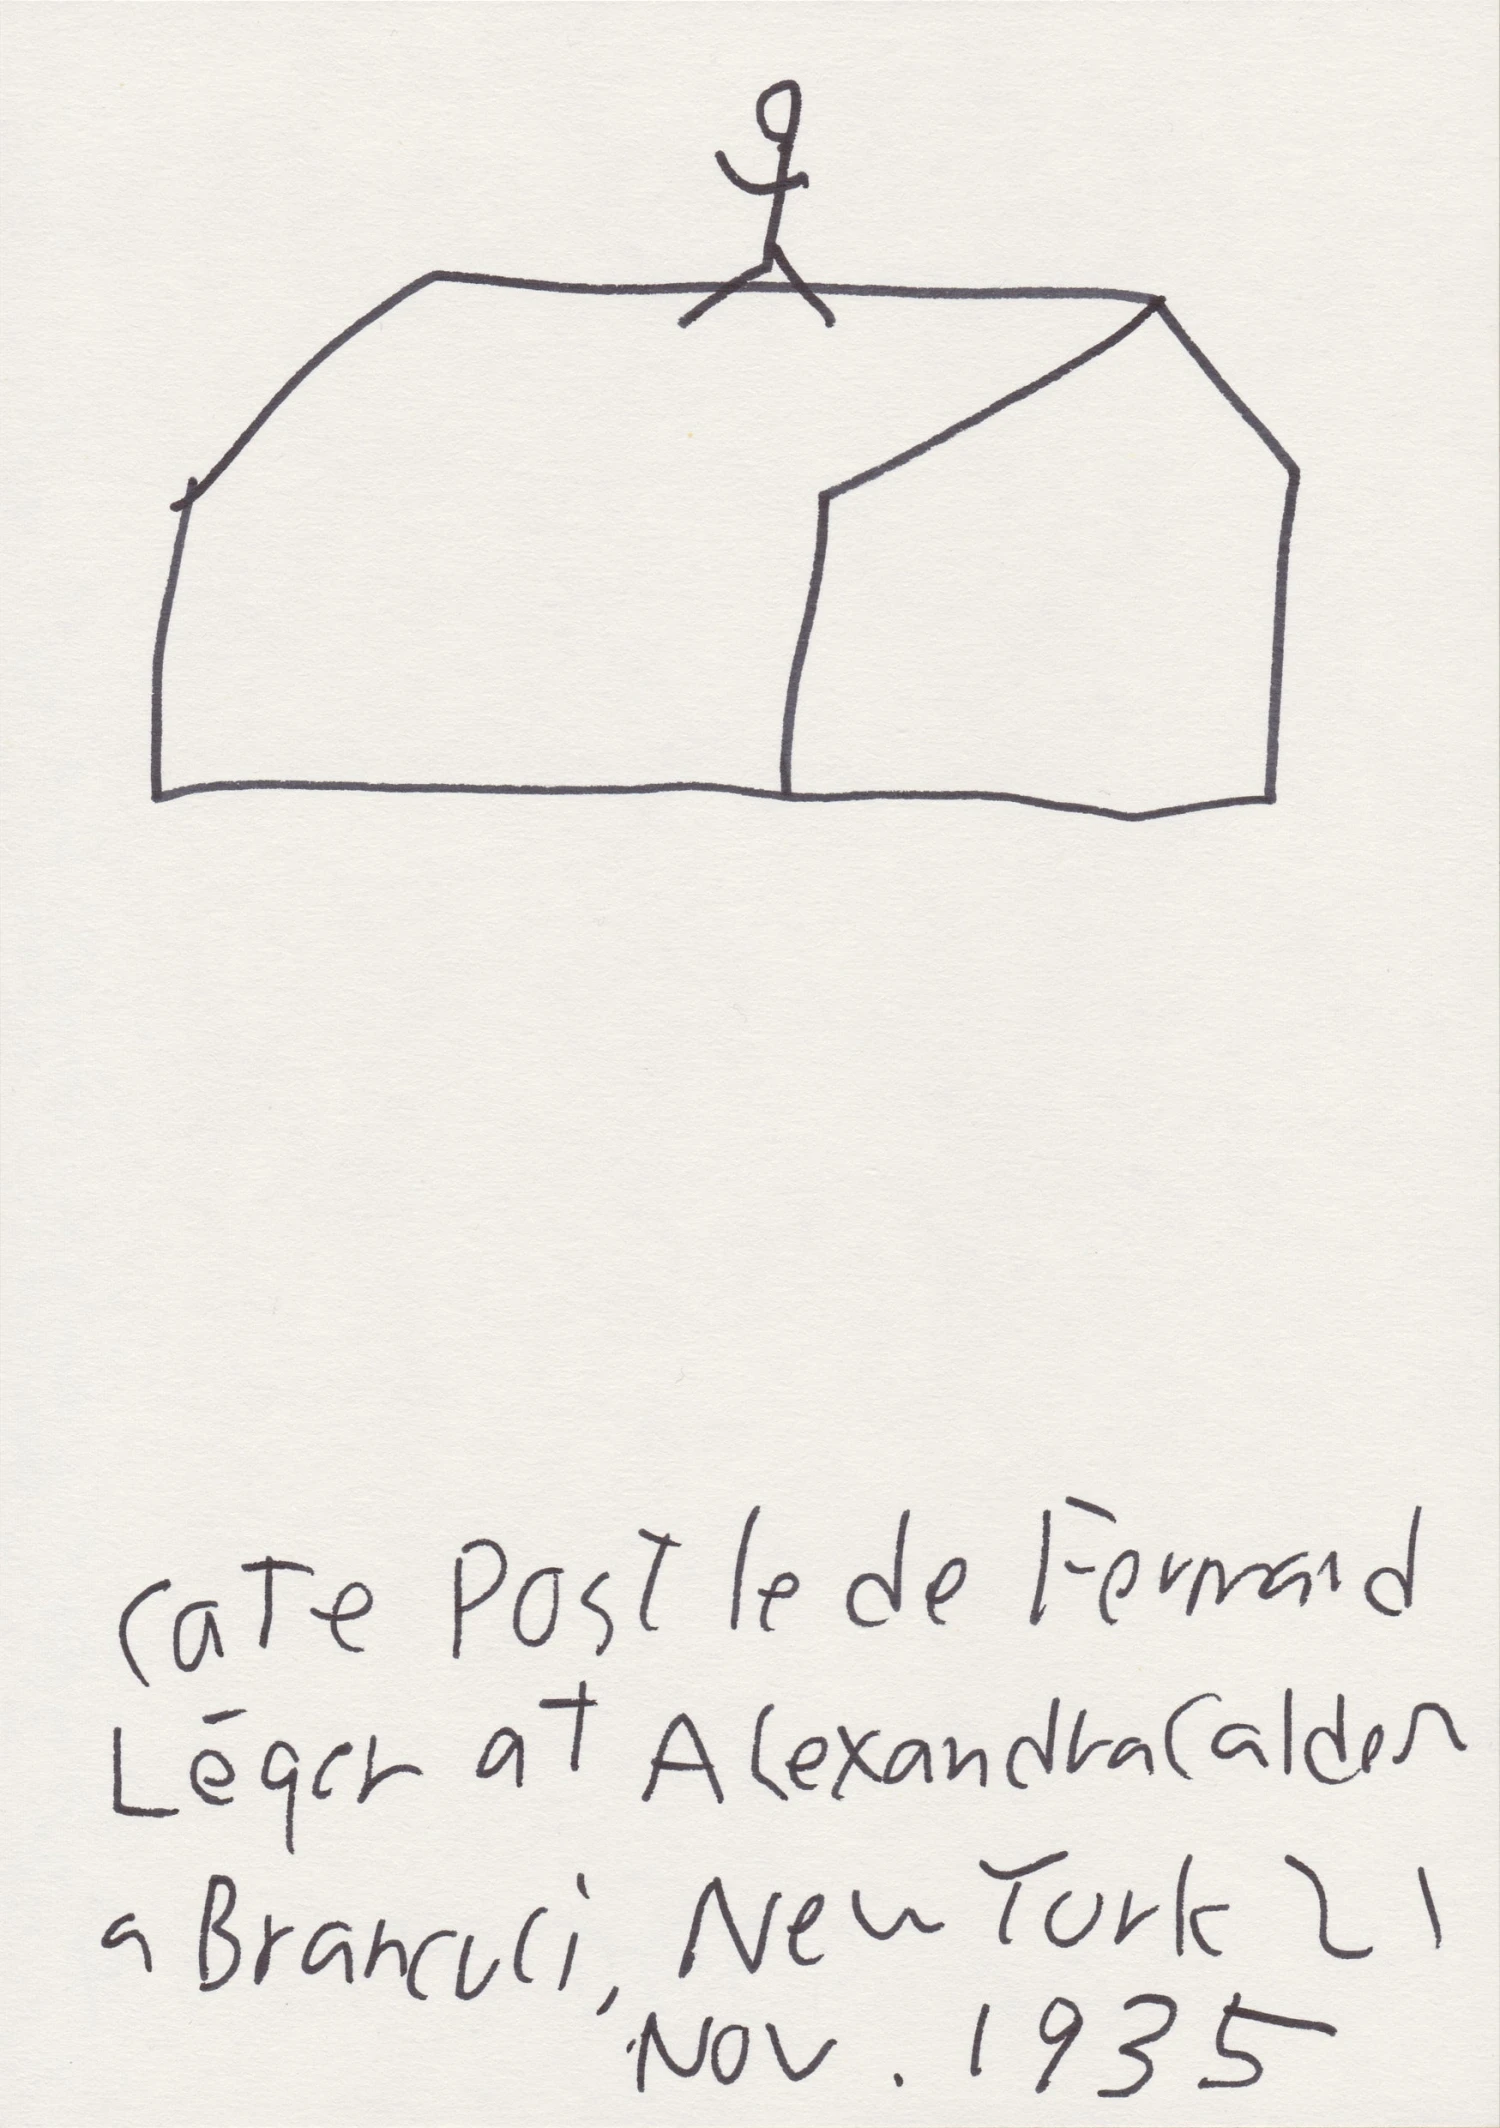 Cate Post le de Fernand
Léger at Alexandra Calder
a Brancuci, New York 21
Nov. 1935